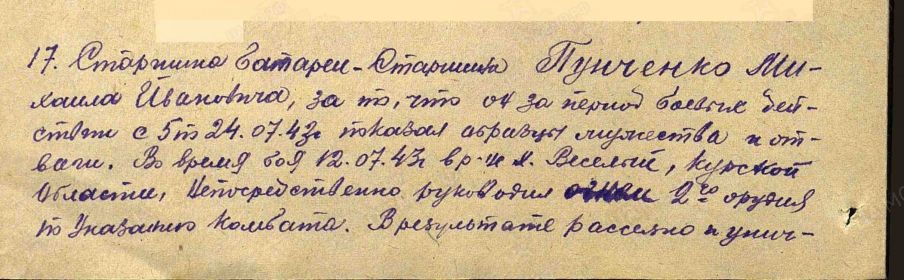 17. Старшина батареи - Старшина Пунченко Ми-
хаила Ивановича, за то, что он за период боевых дей-
ствии с 5 по 24.07.43г показал образцы мужества и от-
ваги. Во время боя 12.07.43г в р-не х. Веселый, Курской
Области, Непосредственно руководил огнем 2го орудия
по Указанию Комбата. В результате рассеяно и унич-